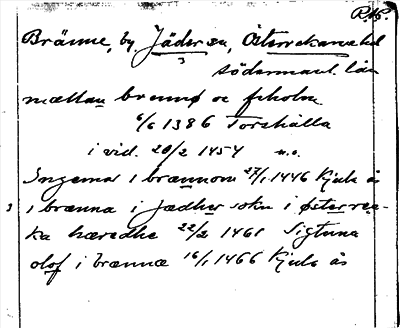 RAP.
Bränne, by, Jäders sn, Österrekarne hd
södermanl. län
mællan brennø oc ekholm
6/6 1386 Torshälla
i vid. 20/2 1454 n.o.
Ingemar i brænnom 27/1 1446 Kjula ås
3 i brænna i Jædher sokn i østerræ-
ka hæredhe 22/2 1461 Sigtuna
olof i brænnæ 16/1 1466 Kjula ås